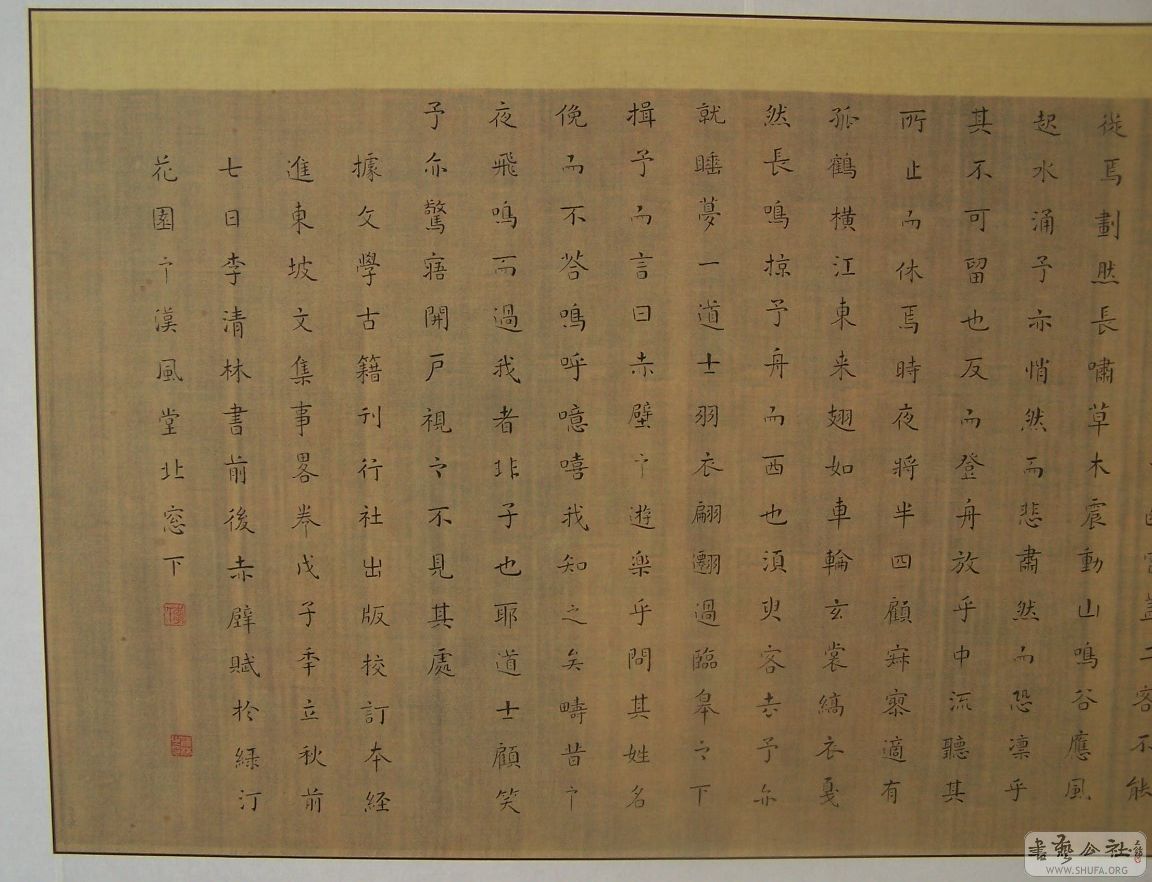 客不能
從焉劃然長嘯草木震動山鳴谷應風
起水涌予亦悄然而悲肅然而恐凛乎
其不可留也反而登舟放乎中流聽其
所止而休焉時夜將半四顧寂寥適有
孤鶴橫江東来翅如車輪玄裳縞衣戛
然長鳴掠予舟而西也須臾客去予亦
就睡夢一道士羽衣翩躚過臨皋之下
揖予而言曰赤壁之遊樂乎問其姓名
俛而不荅嗚呼噫嘻我知之矣疇昔之
夜飛鳴而過我者非子也耶道士顧笑
予亦驚寤開戶視之不見其處
據文學古籍刊行社出版校訂本経
進東坡文集事畧卷戊子年立秋前
七日李清林書前後赤壁賦於緑汀
花園之漢風堂北窓下
書藝公社
WWW.SHUFA.ORG